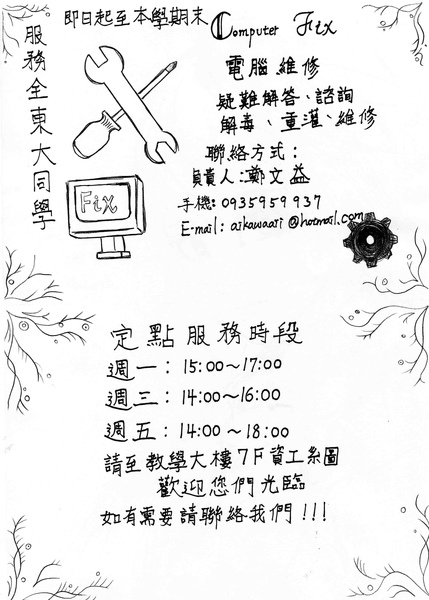 即日起至本學期末
Computer Fix
服務全東大同學
電腦維修
疑難解答、諮詢
解毒、重灌、維修
聯絡方式：
負責人：鄭文益
手機：0935959937
E-mail：aikawaari@hotmail.com
Fix
定點服務時段
週一：15:00～17:00
週三：14:00～16:00
週五：14:00～18:00
請至教學大樓7F資工系圖
歡迎您們光臨
如有需要請聯絡我們!!!